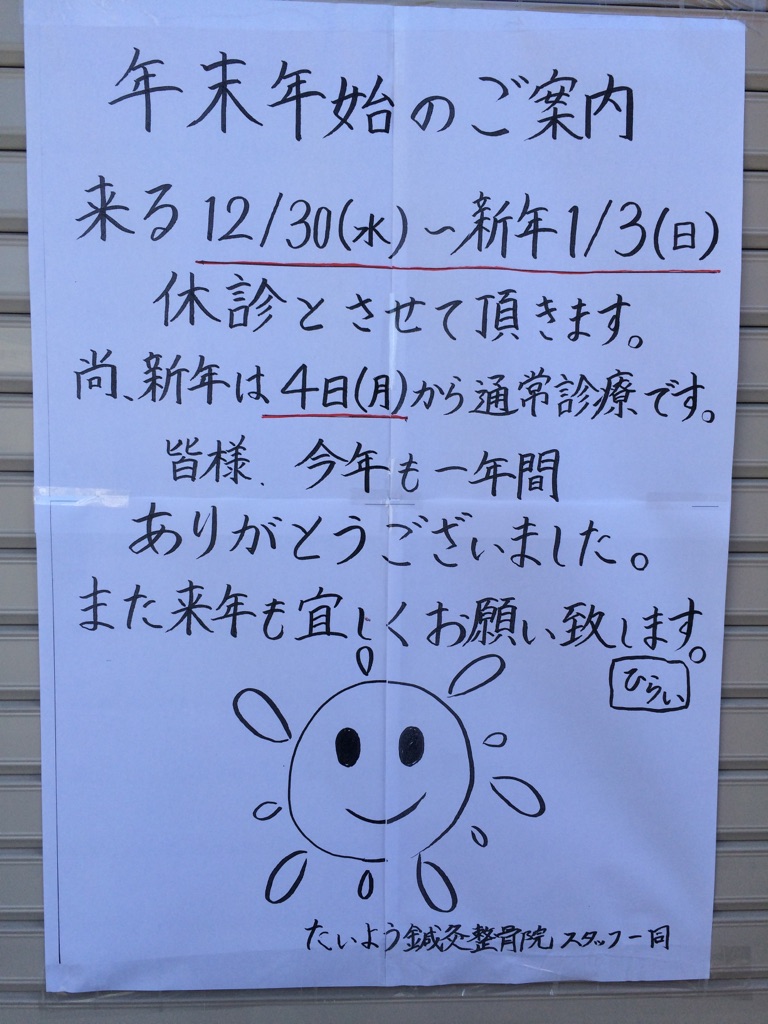 年末年始のご案内
来る12/30(水)～新年1/3(日)
休診とさせて頂きます。
尚、新年は4日(月)から通常診療です。
皆様、今年も一年間
ありがとうございました。
また来年も宜しくお願い致します。
ひらい
たいよう鍼灸整骨院スタッフ一同